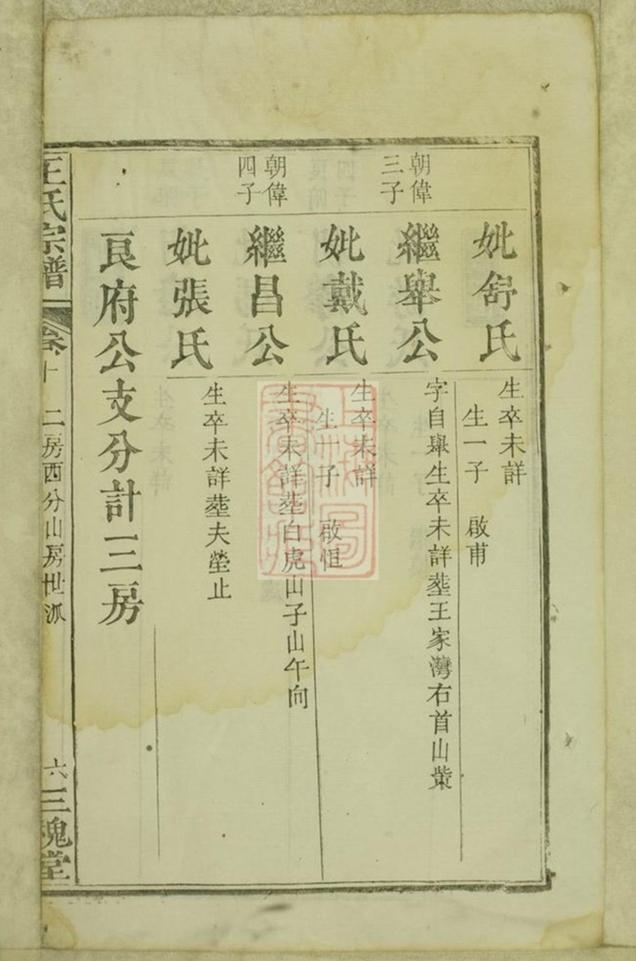 妣舒氏
生卒未詳
生一子 啟甫
朝偉
三子
繼舉公
字自舉生卒未詳塟王家灣右首山
妣戴氏
生卒未詳
生一子 啟恒
朝偉
四子
繼昌公
生卒未詳塟白虎山子山午向
妣張氏
生卒未詳塟夫塋止
良府公支分計三房
王氏宗譜
卷十 二房西分山房世派
六 三槐堂